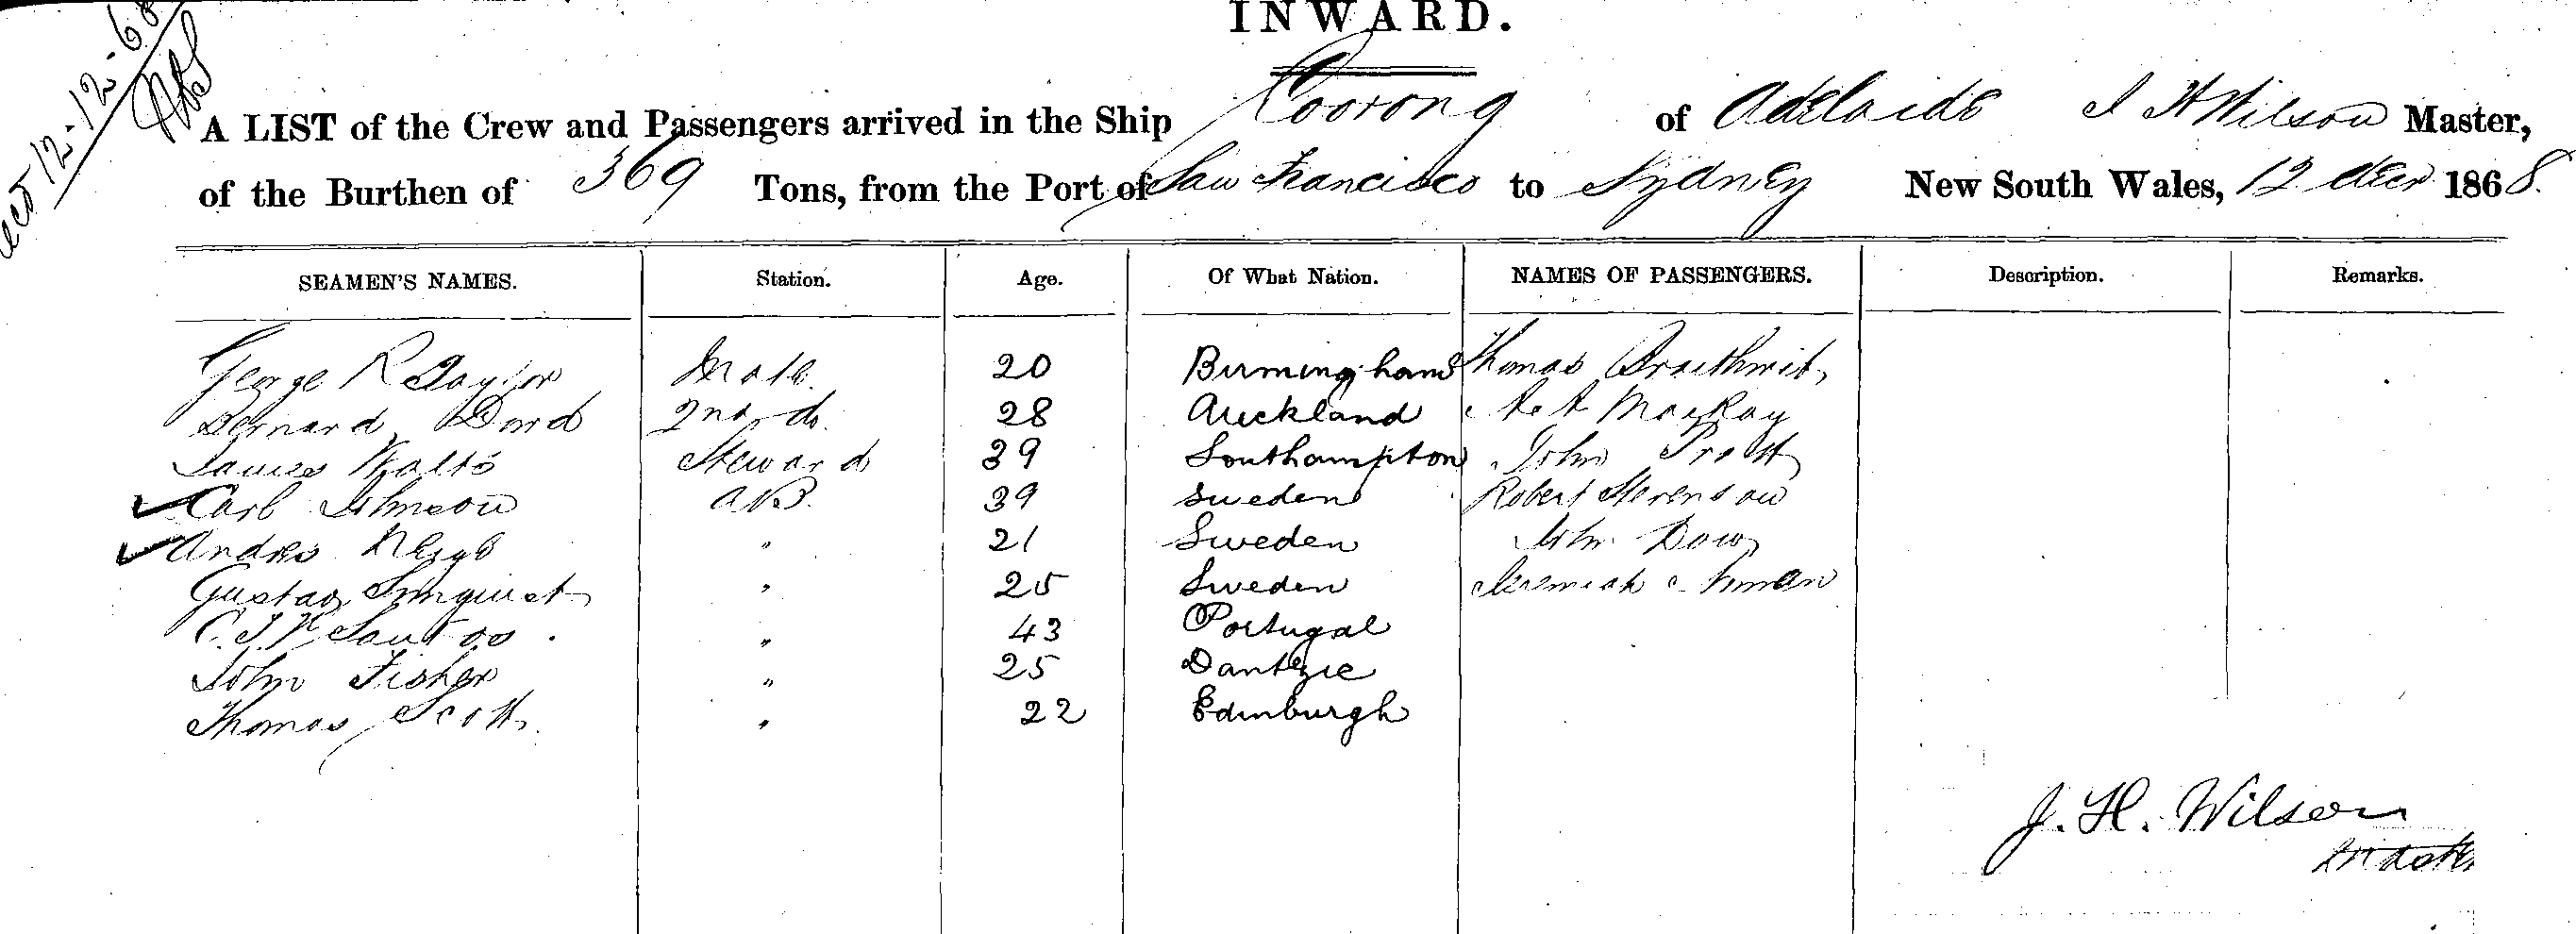 12-12-68
INWARD.
A LIST of the Crew and Passengers arrived in the Ship Coorong of Adelaide J H Wilson Master,
of the Burthen of 369 Tons, from the Port of San Francisco to Sydney New South Wales, 12 Decr 1868.
SEAMEN'S NAMES. Station. Age. Of What Nation. NAMES OF PASSENGERS. Description. Remarks.
George R Taylor Mate 20 Birmingham Thomas
Bernard 2nd do. 28 Auckland MacKay
James Steward 39 Southampton John Pratt
Carl Johnson AB. 39 Sweden Robert Stevenson
Andres " 21 Sweden John Dow
Gustav " 25 Sweden Jeremiah
Santos " 43 Portugal
John Fisher " 25 Dantzic
Thomas Scott " 22 Edinburgh
J. H. Wilson
Master